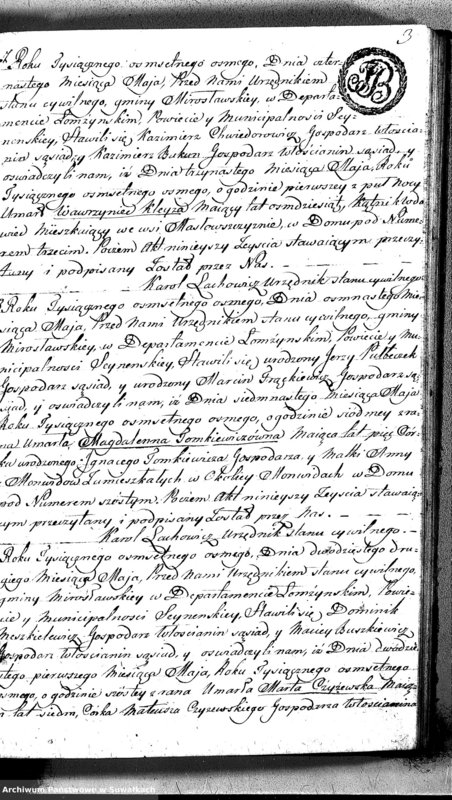 3
Roku Tysiącznego osmsetnego osmego, Dnia czter-
nastego Miesiąca Maja, Przed Nami Urzędnikiem
stanu cywilnego, gminy Mirosławskiey, w Departa-
mencie Łomżynskim, Powiecie y Municipalnosci Sey-
nenskiey, Stawili się Kazimierz Chwiedorowicz Gospodarz Włościa-
nin sąsiad, y Kazimierz Gospodarz Włościanin sąsiad, y
oswiadczyli nam, iż Dnia trzynastego Miesiąca Maja, Roku
Tysiącznego osmsetnego osmego, o godzinie pierwszey z puł Nocy
Umarł Wawrzyniec Kleyza Maiący lat osmdziesiąt, Wdo-
wiec Mieszkaiący we wsi w Domu pod Nume-
rem trzecim. Poczem Akt ninieyszy Zeyscia stawaiącym przeczy-
tany i podpisany Został przez Nas.
Karol Lachowicz Urzędnik stanu cywilnego
Roku Tysiącznego osmsetnego osmego, Dnia osmnastego Mie-
siąca Maja, Przed Nami Urzędnikiem stanu cywilnego, gminy
Mirosławskiey, w Departamencie Łomżynskim, Powiecie y Mu-
nicipalnosci Seynenskiey, Stawili się urodzony Jerzy
Gospodarz sąsiad, y urodzony Marcin Gospodarz są-
siad, y oswiadczyli nam, iż Dnia siedmnastego Miesiąca Maja
Roku Tysiącznego osmsetnego osmego, o godzinie siodmey zra-
na Umarła Magdalenna Tomkiewiczowna Maiąca lat pięć Cór-
ka urodzonego Ignacego Tomkiewicza Gospodarza y Matki Anny
z Monwidow Zamieszkałych w Okolicy Monwidach w Domu
pod Numerem szostym. Poczem Akt ninieyszy Zeyscia stawaią-
cym przeczytany, i podpisany Został przez Nas.
Karol Lachowicz Urzędnik stanu cywilnego
Roku Tysiącznego osmsetnego osmego, Dnia dwudziestego dru-
giego Miesiąca Maja, Przed Nami Urzędnikiem stanu cywilnego,
gminy Mirosławskiey w Departamencie Łomżynskim, Powie-
cie y Municipalnosci Seynenskiey, Stawili się Dominik
Mieszkielewicz Gospodarz Włościanin sąsiad, y Maciey Buszkiewicz
Gospodarz Włościanin sąsiad, y oswiadczyli nam, iż Dnia dwudzie-
stego pierwszego Miesiąca Maja, Roku Tysiącznego osmsetnego
osmego, o godzinie szostey z rana Umarła Marta Czyżewska Maią-
ca lat siedm, Córka Mateusza Czyżewskiego Gospodarza Włościanina
Archiwum Państwowe w Suwałkach